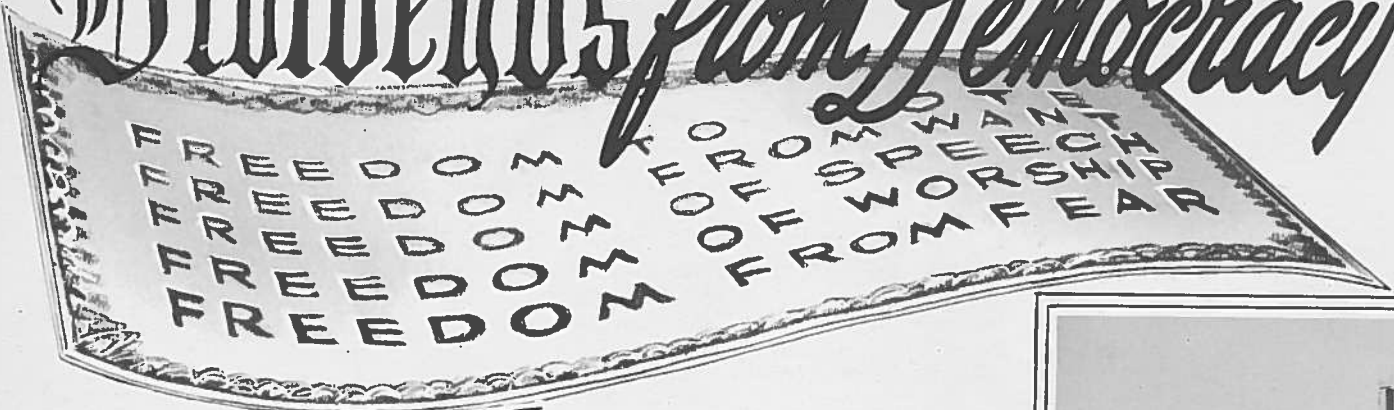 Dividends from Democracy
FREEDOM TO VOTE
FREEDOM FROM WANT
FREEDOM OF SPEECH
FREEDOM OF WORSHIP
FREEDOM FROM FEAR